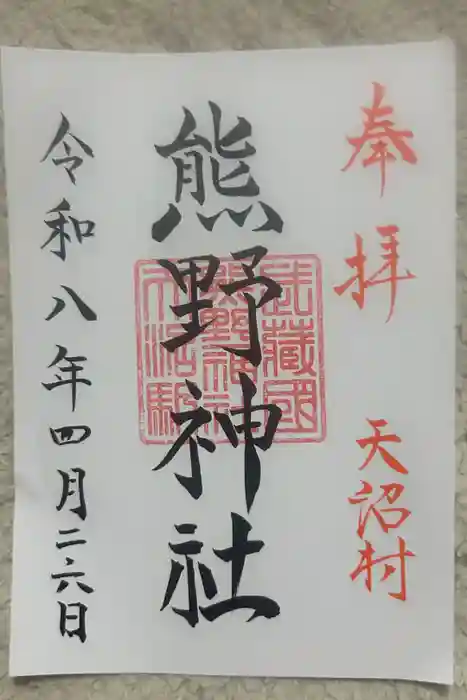 奉拝
天沼村
熊野神社
武藏國
熊野神社
天沼駅
令和八年四月二六日